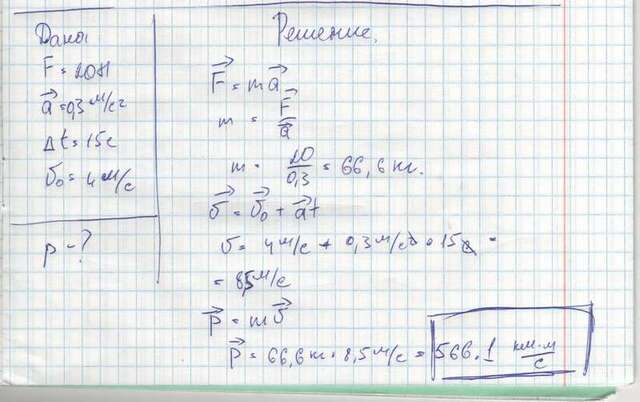 Дано
F = 20Н
a⃗ = 0,3 м/с²
Δt = 15с
υ₀ = 4 м/с
p - ?
Решение.
F⃗ = ma⃗
m = F⃗/a⃗
m = 20/0,3 = 66,6 кг.
υ⃗ = υ⃗₀ + a⃗t
υ = 4 м/с + 0,3 м/с² · 15с =
= 8,5 м/с
p⃗ = mυ⃗
p⃗ = 66,6 кг · 8,5 м/с = 566.1 кг·м/с